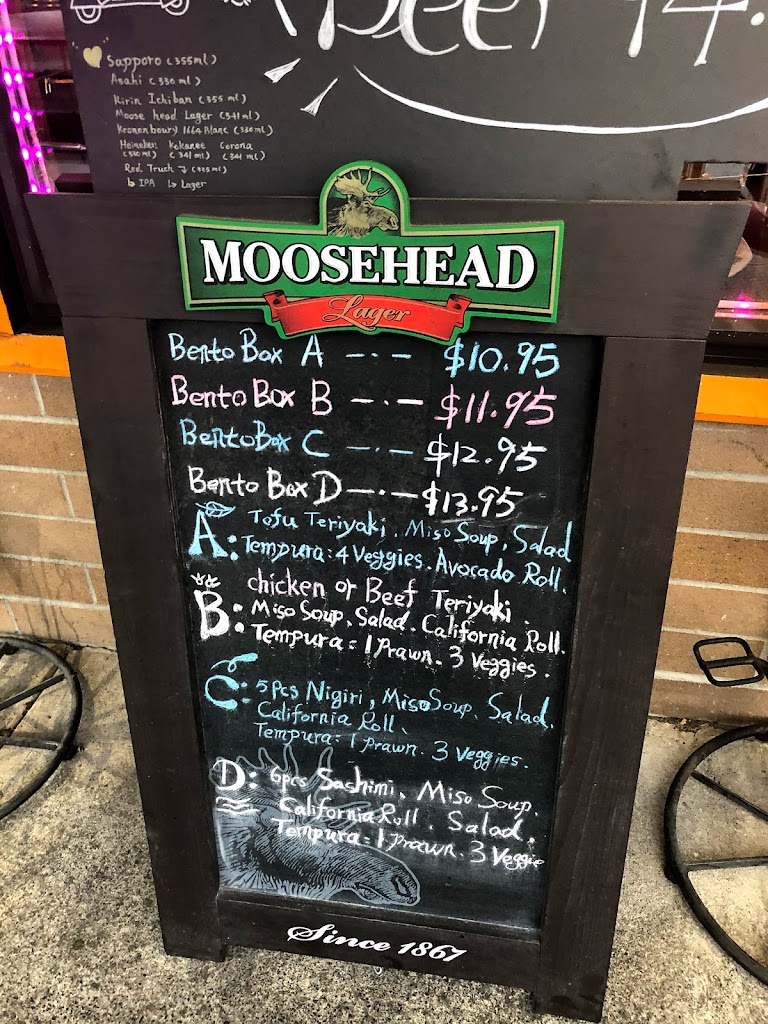 Beer
Sapporo (355ml)
Asahi (330ml)
Kirin Ichiban (355 ml)
Moose head Lager (341ml)
Kronenboury 1664 Blanc (330ml)
Heineken Kokanee Corona
(330ml) (341ml) (341ml)
Red Truck → (355ml)
↳ IPA ↳ Lager
MOOSEHEAD
Lager
Bento Box A —·— $10.95
Bento Box B —·— $11.95
Bento Box C —·— $12.95
Bento Box D —·— $13.95
A: Tofu Teriyaki, Miso Soup, Salad
Tempura: 4 Veggies. Avocado Roll.
B: chicken or Beef Teriyaki.
Miso Soup. Salad. California Roll.
Tempura: 1 Prawn. 3 Veggies.
C: 5pcs Nigiri, Miso Soup. Salad.
California Roll.
Tempura: 1 Prawn. 3 Veggies.
D: 6pcs Sachimi. Miso Soup.
California Roll. Salad.
Tempura: 1 Prawn. 3 Veggie
Since 1867